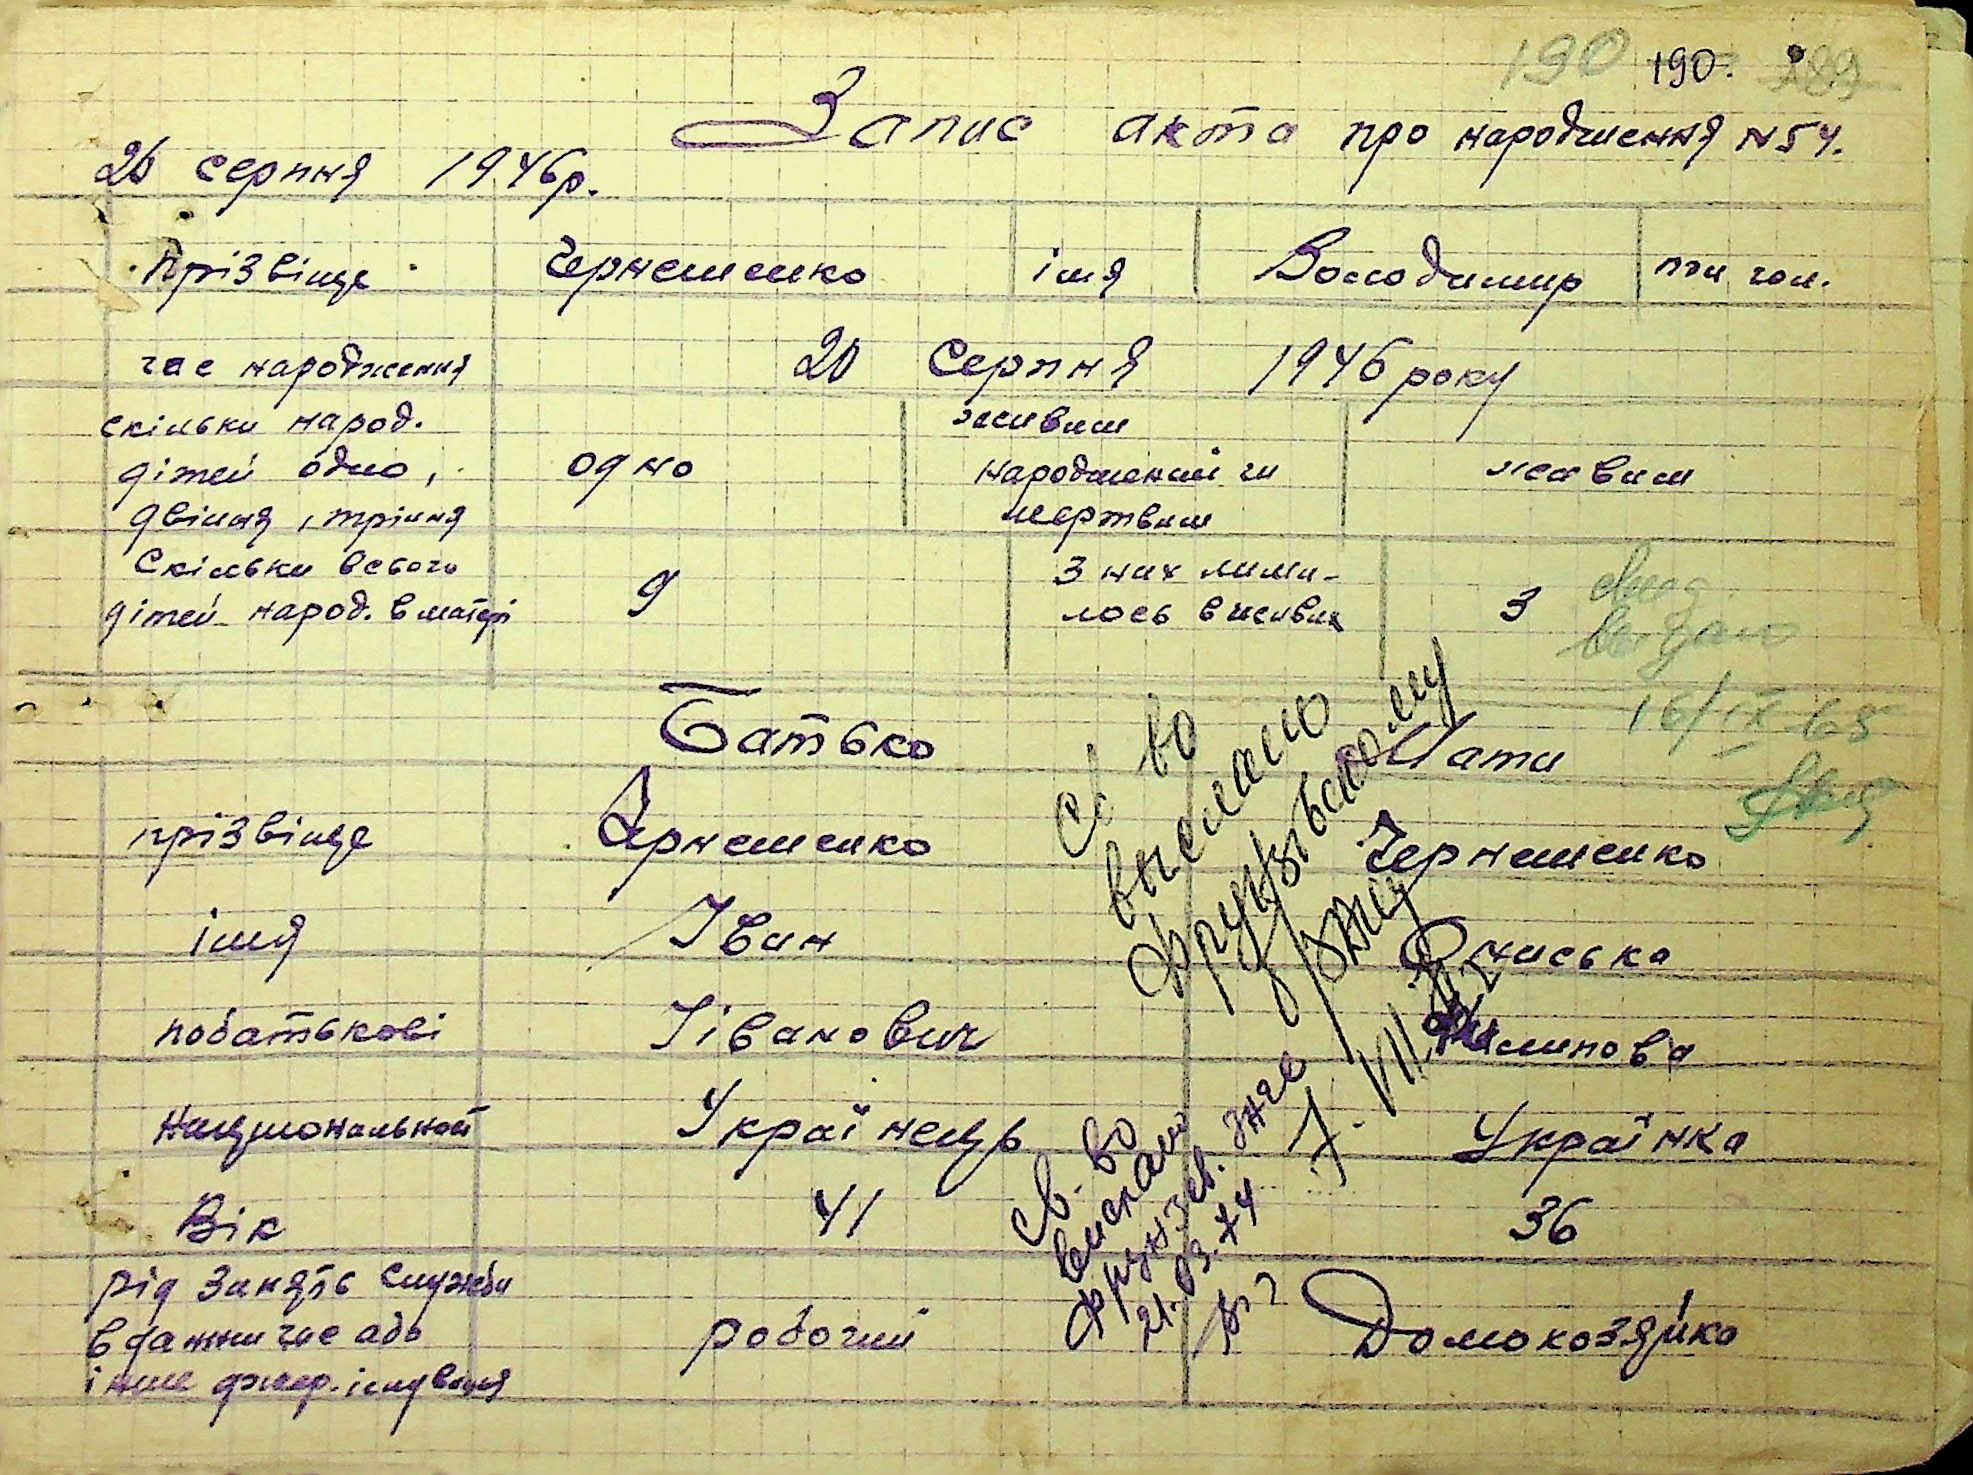 190 190. 189
Запис акта про народження №54.
26 серпня 1946р.
Прізвіще Чернешенко імя Володимир чол.
час народження 20 Серпня 1946 року
скільки народ. дітей одно, двійня, трійня одно живим народжений чи мертвим живим
Скільки всього дітей народ. в матері 9 З них лиши- лось в живих 3
вы дано
16/IX 65
Батько Мати
прізвіще Чернешенко Чернешенко
імя Іван Ониська
побатькові Ііванович Филипова
Национальност Українець Українка
Вік 41 36
рід занять служби в данний час або інше джер. існування робочий Домохозяйка
св во
выслано
Фрунзенскому
7. VII
св-во
выслано
Фрунзев.
21.03.74